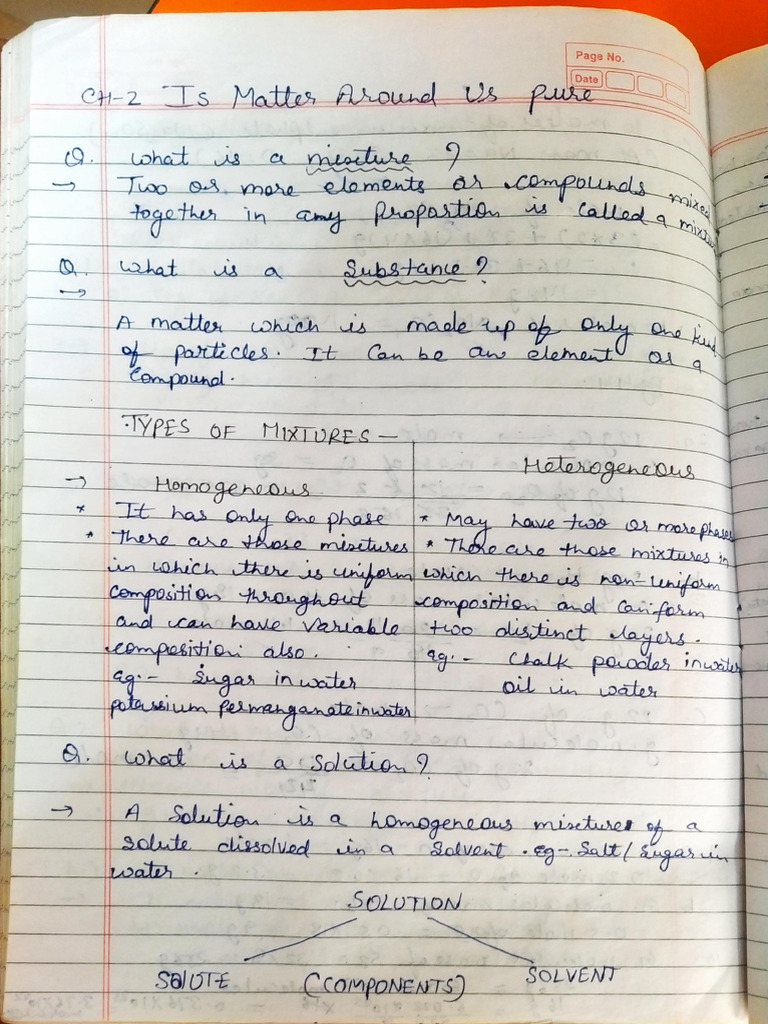 Page No.
Date
CH-2 Is Matter Around Us pure
Q. What is a mixture ?
→ Two or more elements or compounds mixed
together in any proportion is called a mixture
Q. What is a Substance ?
→
A matter which is made up of only one kind
of particles. It can be an element or a
compound.
TYPES OF MIXTURES —
→ Homogeneous
* It has only one phase
* There are those mixtures
in which there is uniform
composition throughout
and can have variable
composition also.
eg:- Sugar in water
potassium permanganate in water
Heterogeneous
* May have two or more phases
* There are those mixtures in
which there is non-uniform
composition and can form
two distinct layers.
eg:- Chalk powder in water
oil in water
Q. What is a solution ?
→ A Solution is a homogeneous mixture of a
solute dissolved in a solvent. eg- Salt/Sugar in
water.
SOLUTION
SOLUTE (COMPONENTS) SOLVENT